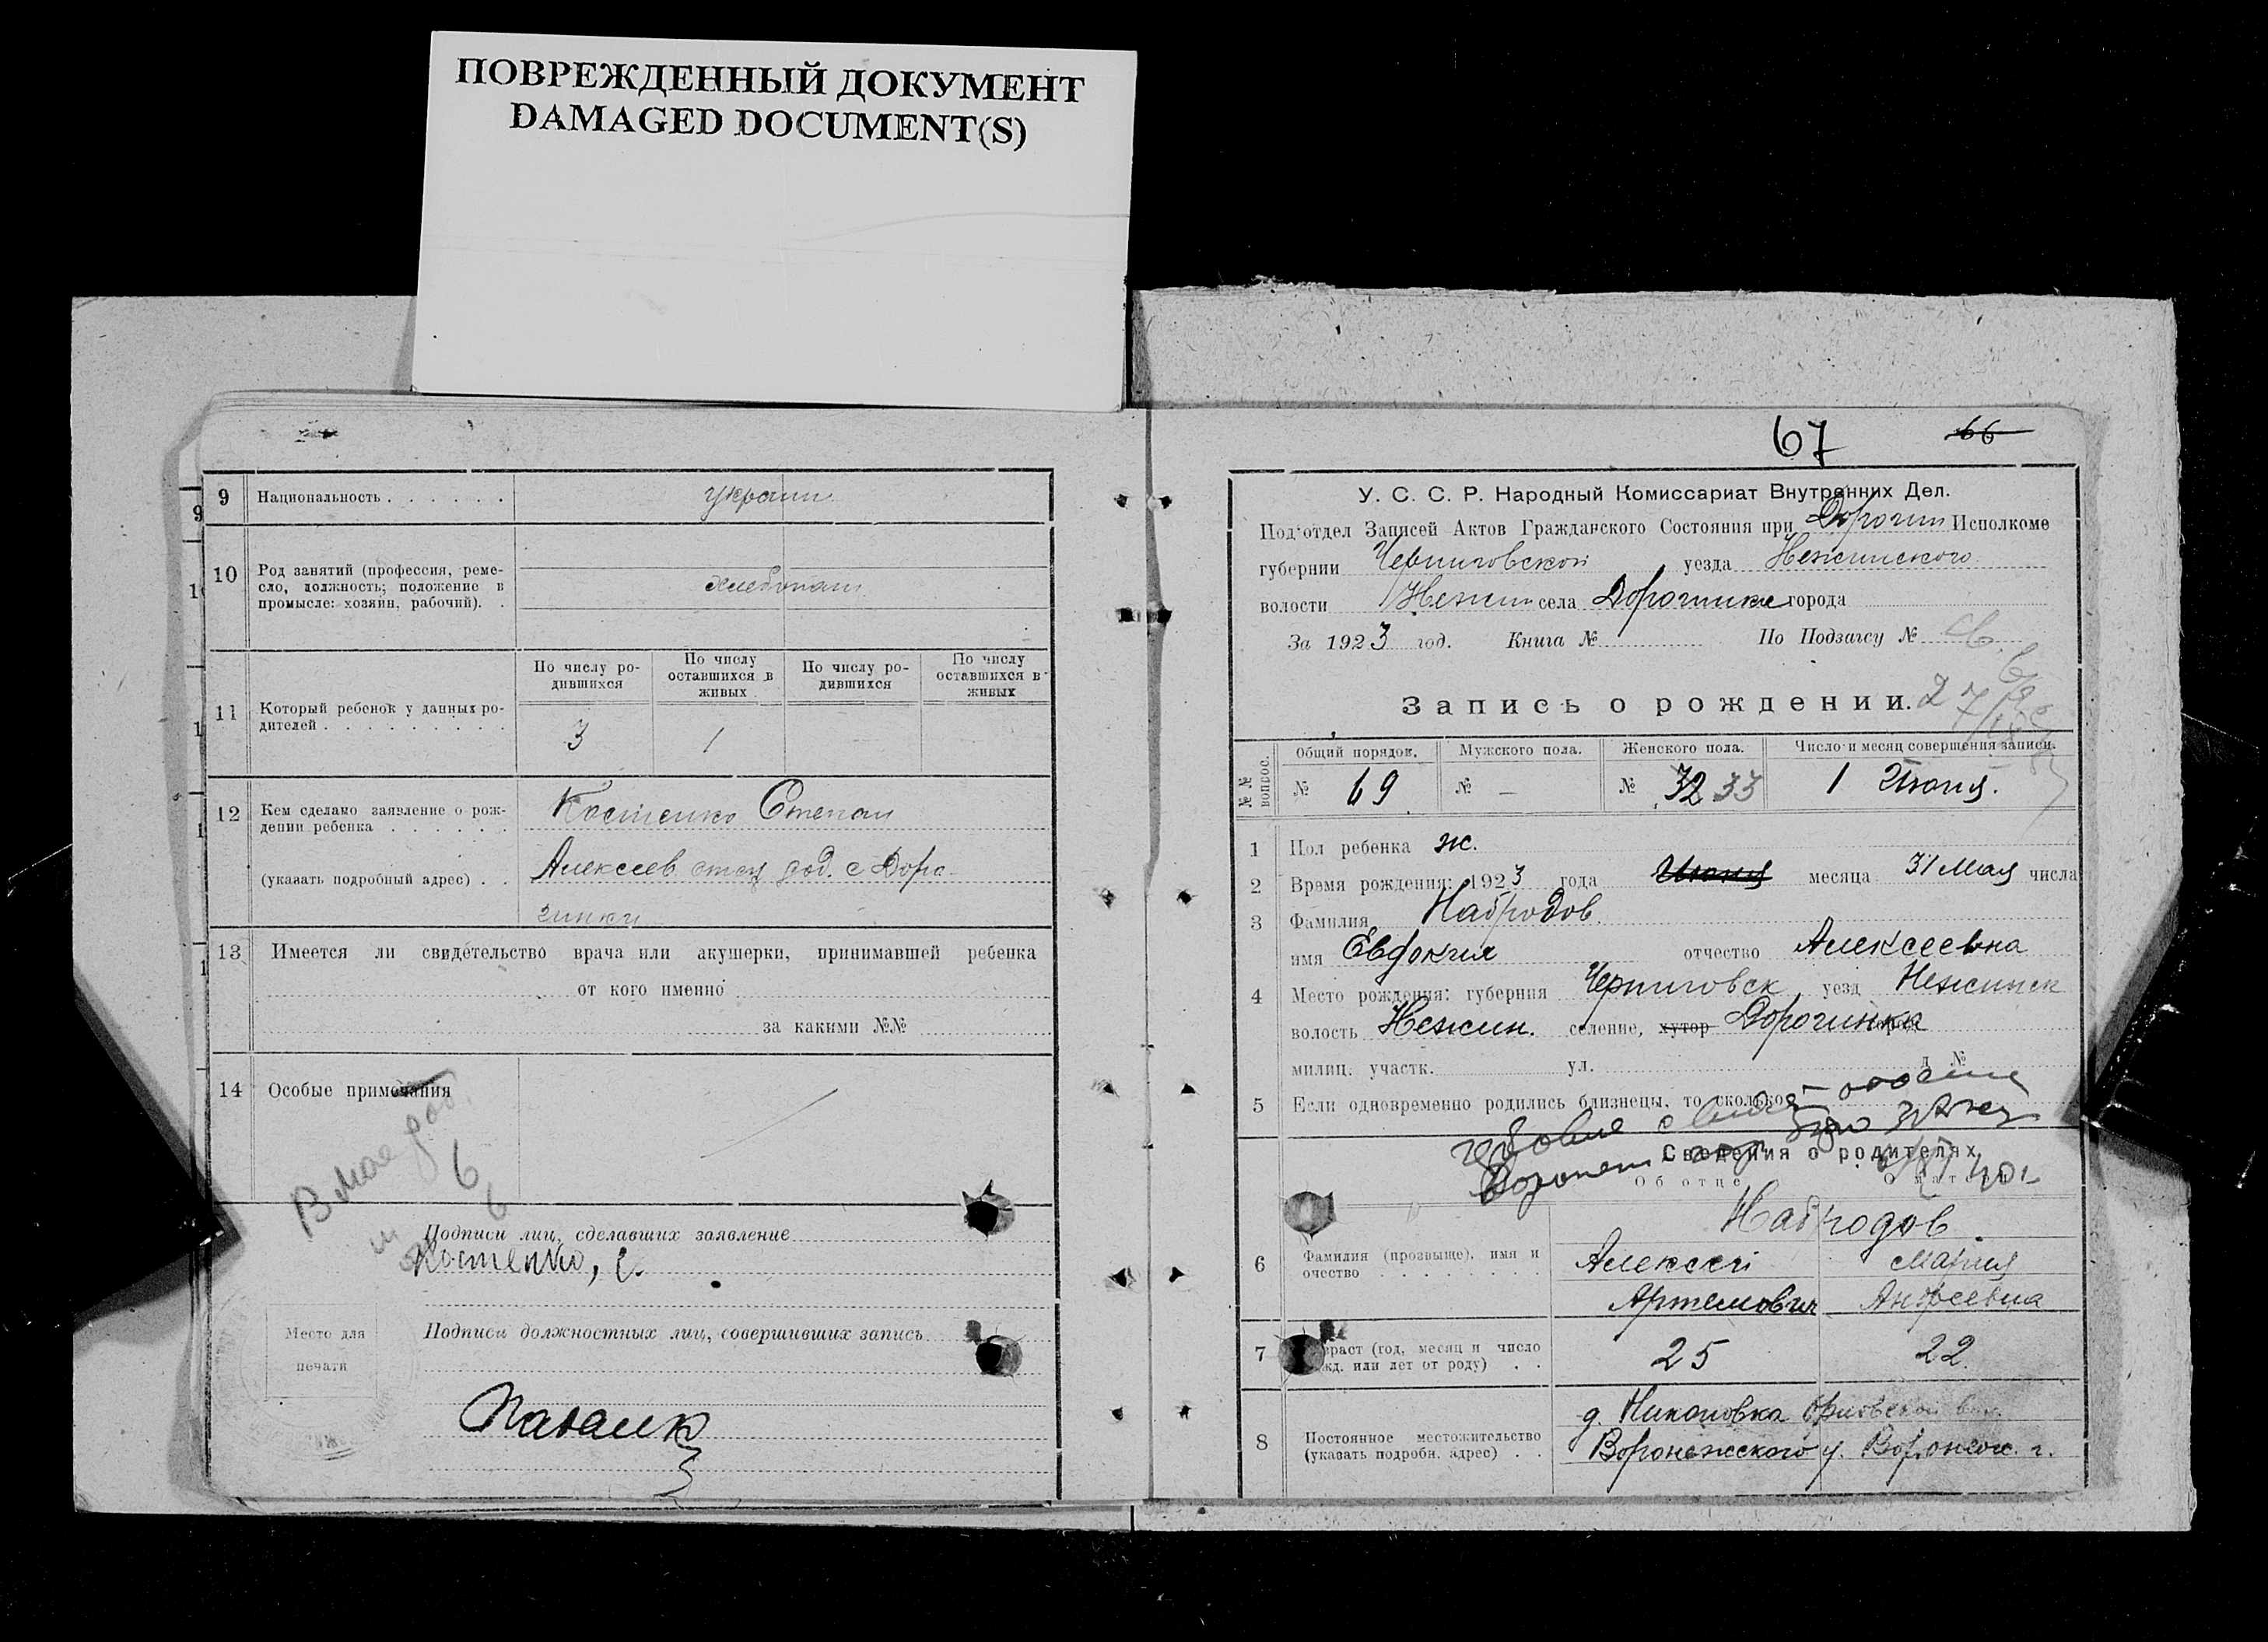 ПОВРЕЖДЕННЫЙ ДОКУМЕНТ
DAMAGED DOCUMENT(S)
9 Национальность . . . . . . украин
10 Род занятий (профессия, реме-
сло, должность; положение в
промысле: хозяин, рабочий). .
хлебопаш
11 Который ребенок у данных ро-
дителей . . . . . . . . .
По числу ро-
дившихся
По числу
оставшихся в
живых
По числу ро-
дившихся
По числу
оставшихся в
живых
3 1
12 Кем сделано заявление о рож-
дении ребенка . . . . . .
(указать подробный адрес) . .
Костенко Степан
Алексеев отец с Доро-
гинки
13 Имеется ли свидетельство врача или акушерки, принимавшей ребенка
от кого именно
за какими №№
14 Особые примечания
Подписи лиц, сделавших заявление
Костенко, С.
Место для
печати
Подписи должностных лиц, совершивших запись
67 66
У. С. С. Р. Народный Комиссариат Внутренних Дел.
Под'отдел Записей Актов Гражданского Состояния при Дорогин Исполкоме
губернии Черниговской уезда Нежинского
волости Нежин села Дорогинка города
За 1923 год. Книга № По Подзагсу №
Запись о рождении.
№№ вопрос.
Общий порядок. Мужского пола. Женского пола. Число и месяц совершения записи.
№ 69 № — № 32 33 1 Июня.
1 Пол ребенка ж.
2 Время рождения: 1923 года Июня месяца 31 Мая числа
3 Фамилия Набродов
имя Евдокия отчество Алексеевна
4 Место рождения: губерния Черниговск уезд Нежинск
волость Нежин. селение, хутор Дорогинка город
милиц. участк. ул. д №
5 Если одновременно родились близнецы, то сколько
Сведения о родителях
Об отце О матери
6 Фамилия (прозвыще), имя и
очество . . . . . . . .
Набродов
Алексей Мария
Артемович Андреевна
7 Возраст (год, месяц и число
рожд. или лет от роду) . .
25 22
8 Постоянное местожительство
(указать подробн. адрес) . .
д. Никоновка Орловской вол.
Воронежского у. Воронеж. г.